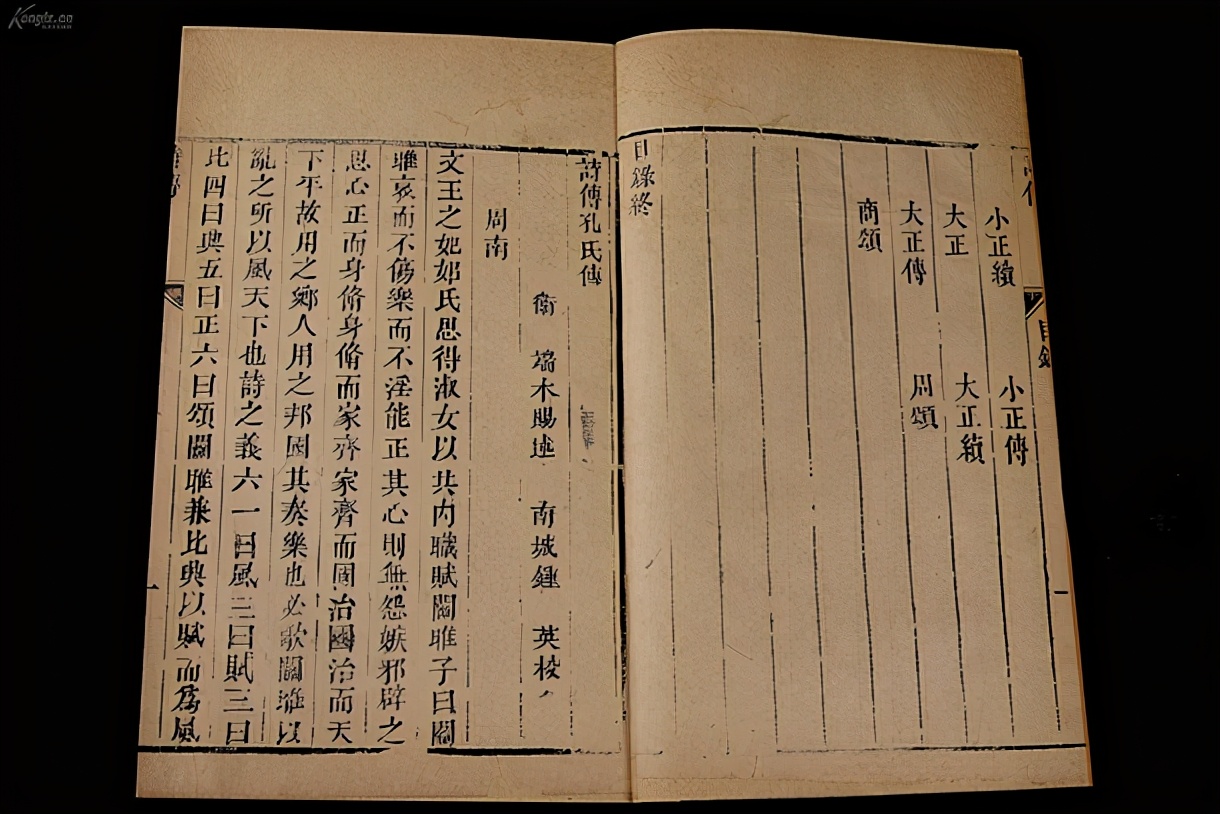 目錄
一
小正續 小正傳
大正 大正續
大正傳 周頌
商頌
目錄終
詩傳孔氏傳
衛 端木賜述 南城鍾 英校
周南
文王之妃姒氏思得淑女以共內職賦關雎子曰關
雎哀而不傷樂而不淫能正其心則無怨嫉邪辟之
思心正而身脩身脩而家齊家齊而國治國治而天
下平故用之鄉人用之邦國其奏樂也必歌關雎以
亂之所以風天下也詩之義六一曰風二曰賦三曰
比四曰興五曰正六曰頌關雎兼比興以賦而為風
一